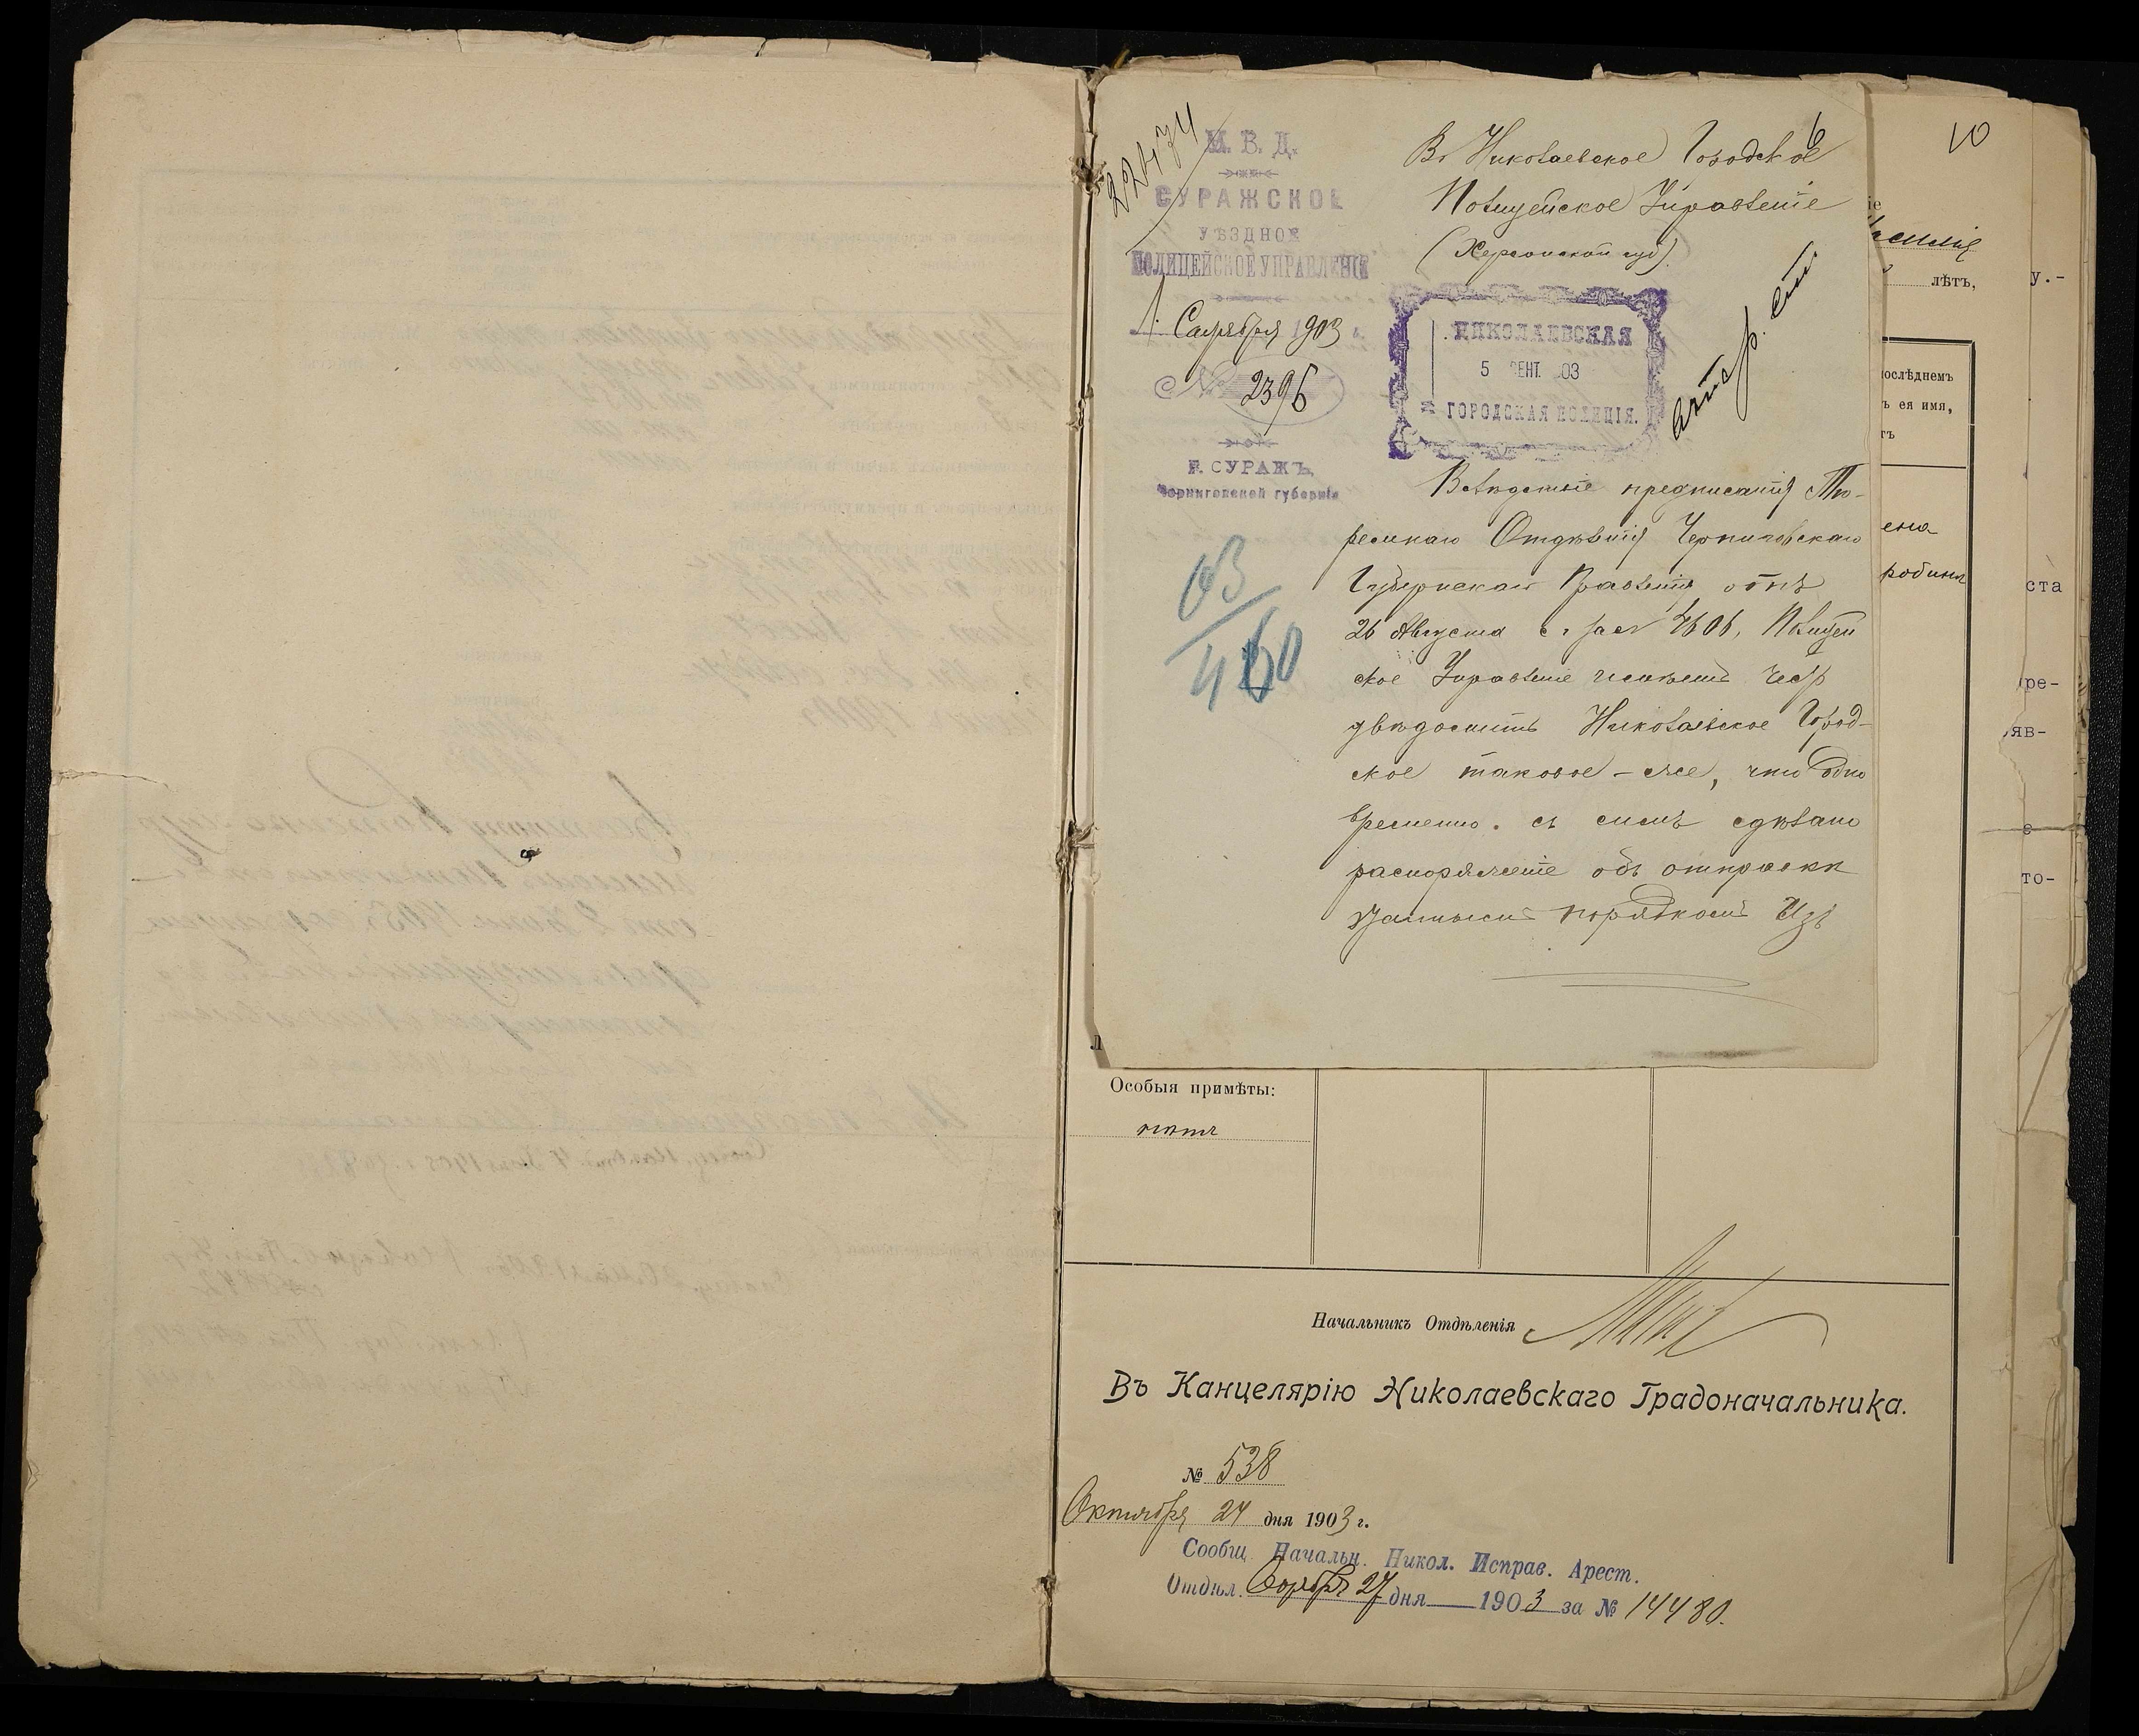 22474
М. В. Д.
СУРАЖСКОЕ
УѢЗДНОЕ
ПОЛИЦЕЙСКОЕ УПРАВЛЕНІЕ
1 Сентября 1903 г.
№ 2396
Г. СУРАЖЪ,
Черниговской губерніи
63
460
6
Въ Николаевское Городское
Полицейское Управленіе
(Херсонской губ)
НИКОЛАЕВСКАЯ
5 СЕНТ. 03
ГОРОДСКАЯ ПОЛИЦІЯ.
Вслѣдствіе предписанія Тю-
ремнаго Отдѣленія Черниговскаго
Губернскаго Правленія отъ
26 Августа с. г. за № 7606, Полицей
ское Управленіе имѣетъ честь
увѣдомить Николаевское Город-
ское таковое-же, что одно
временно съ симъ сдѣлано
распоряженіе объ отправкѣ
этапнымъ порядкомъ изъ
10
іе
лѣтъ,
послѣднемъ
ъ ея имя,
тъ
ена
родина
у.-
ста
ре-
яв-
е
то-
Особыя примѣты:
нѣтъ
Начальникъ Отдѣленія
Въ Канцелярію Николаевскаго Градоначальника.
№ 538
Октября 24 дня 1903 г.
Сообщ. Начальн. Никол. Исправ. Арест.
Отдѣл. 27 дня 1903 за № 14480.